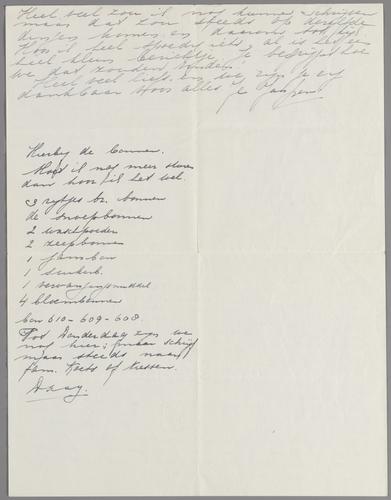 Heel veel zou ik nog kunnen schrijven
maar dat zou steeds op dezelfde
dingen komen en daarom tot
Hoor ik heel spoedig iets, al is het een
heel klein berichtje, je begrijpt hoe
we dat zouden vinden.
Heel veel liefs en we zijn je erg
dankbaar voor alles je
Hierbij de bonnen.
Moet ik nog meer sturen
dan hoor ik het wel.
3 rijtjes br. bonnen
de snoepbonnen
2 waschpoeder
2 zeepbonnen
1 jambon
1 suikerb.
1 vervangingsmiddel
4 bloembonnen
bon 610-609-608.
Tot Donderdag zijn we
nog hier; maar schrijf
maar steeds naar
fam. Koets of
Daag.